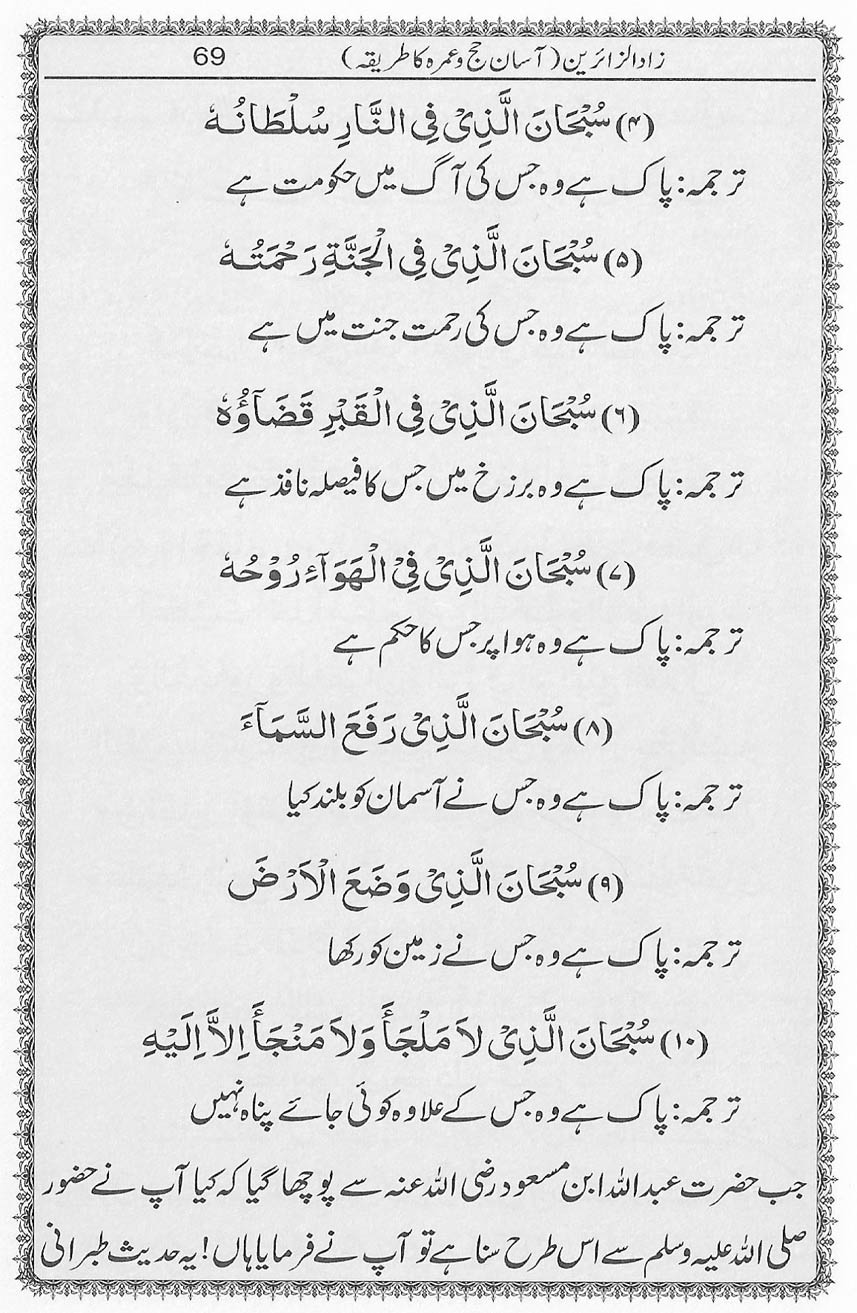 زاد الزائرین (آسان حج وعمرہ کا طریقہ) 69
(۴) سُبْحَانَ الَّذِیْ فِی النَّارِ سُلْطَانُـهٗ
ترجمہ: پاک ہے وہ جس کی آگ میں حکومت ہے
(۵) سُبْحَانَ الَّذِیْ فِی الْجَنَّةِ رَحْمَتُـهٗ
ترجمہ: پاک ہے وہ جس کی رحمت جنت میں ہے
(۶) سُبْحَانَ الَّذِیْ فِی الْقَبْرِ قَضَآؤُهٗ
ترجمہ: پاک ہے وہ برزخ میں جس کا فیصلہ نافذ ہے
(۷) سُبْحَانَ الَّذِیْ فِیْ الْهَوَآءِ رُوْحُهٗ
ترجمہ: پاک ہے وہ ہوا پر جس کا حکم ہے
(۸) سُبْحَانَ الَّذِیْ رَفَعَ السَّمَآءَ
ترجمہ: پاک ہے وہ جس نے آسمان کو بلند کیا
(۹) سُبْحَانَ الَّذِیْ وَضَعَ الْاَرْضَ
ترجمہ: پاک ہے وہ جس نے زمین کو رکھا
(۱۰) سُبْحَانَ الَّذِیْ لَا مَلْجَأَ وَلَا مَنْجَأَ اِلَّا اِلَیْهِ
ترجمہ: پاک ہے وہ جس کے علاوہ کوئی جائے پناہ نہیں
جب حضرت عبداللہ ابن مسعود رضی اللہ عنہ سے پوچھا گیا کہ کیا آپ نے حضور
صلی اللہ علیہ وسلم سے اس طرح سنا ہے تو آپ نے فرمایا ہاں! یہ حدیث طبرانی